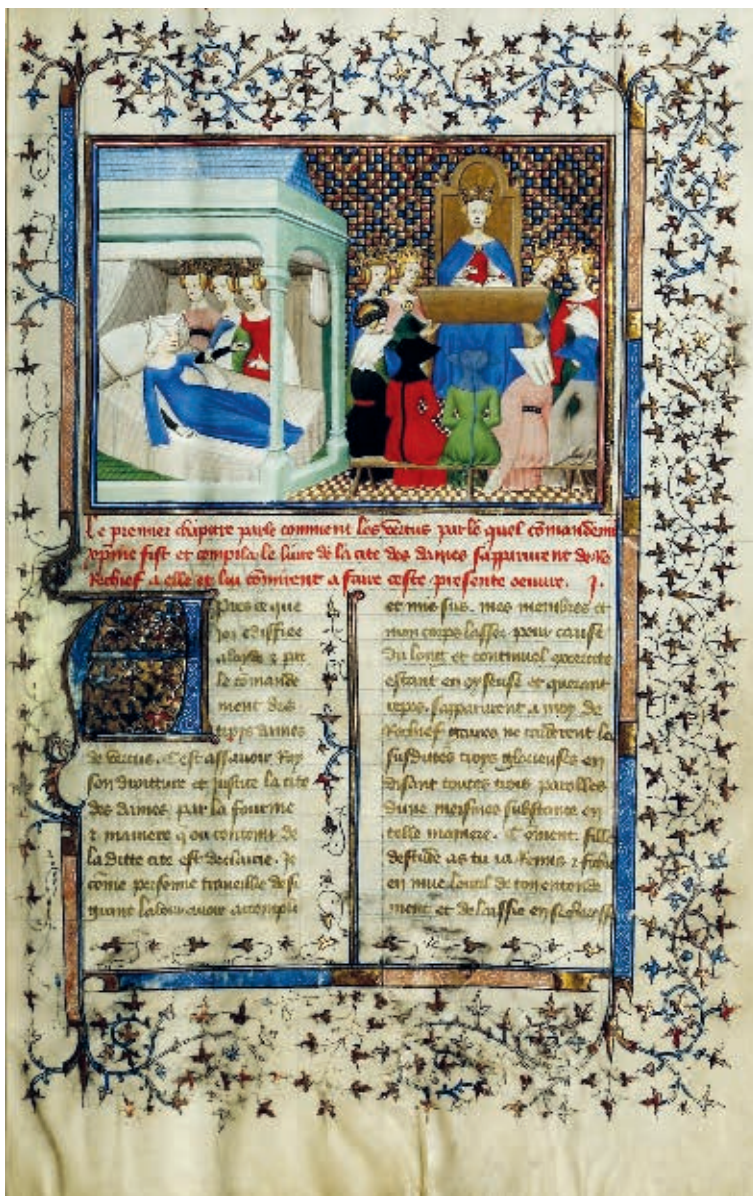 Le premier chapitre parle comment les vertus par le quel comandement
xpine fist et compila le livre de la cite des dames sapparurent de
Rechief a elle et lui comirent a faire ceste presente oeuvre. j.
Apres ce que
joz ediffiee
a layde & par
le comande
ment des
trops dames
de vertus. Cest assavoir Ray
son droitture et justice la cite
des dames par la fourme
& maniere q ou contenu de
la ditte cite est declairie. Je
come personne travaillee de si
grant labour avoir acompli
et mis sus. mes membres et
mon corps lassez pour cause
du long et continuel excercite
estant en oyseuse et querant
repos. sapparurent a moy de
Rechief gaires ne tarderent les
susdites troys glorieuses en
disant toutes trois parolles
dune mesmes substance en
telle maniere. Coment fille
destude as tu ja Remis & fichie
en mue loutil de ton entende
ment et delaissie en secheresse